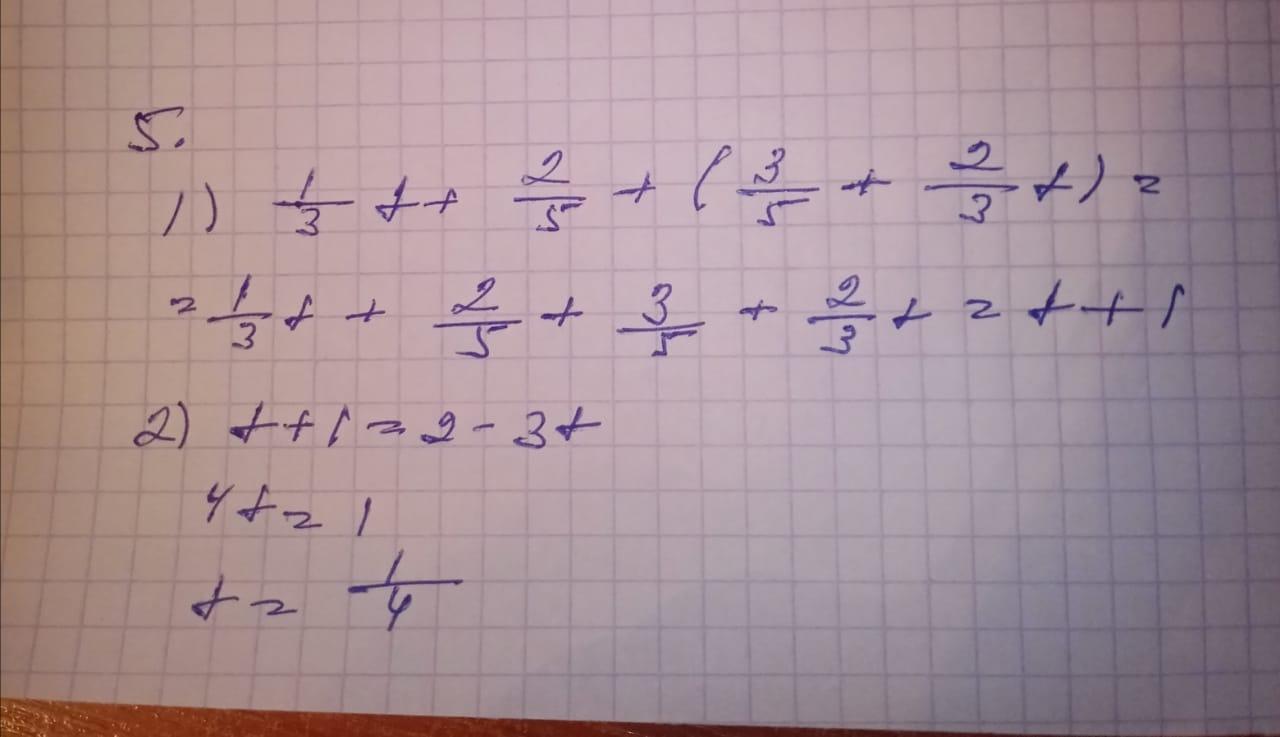 5.
1) 1/3 t + 2/5 + (3/5 + 2/3 t) =
= 1/3 t + 2/5 + 3/5 + 2/3 t = t + 1
2) t + 1 = 2 - 3t
4t = 1
t = 1/4